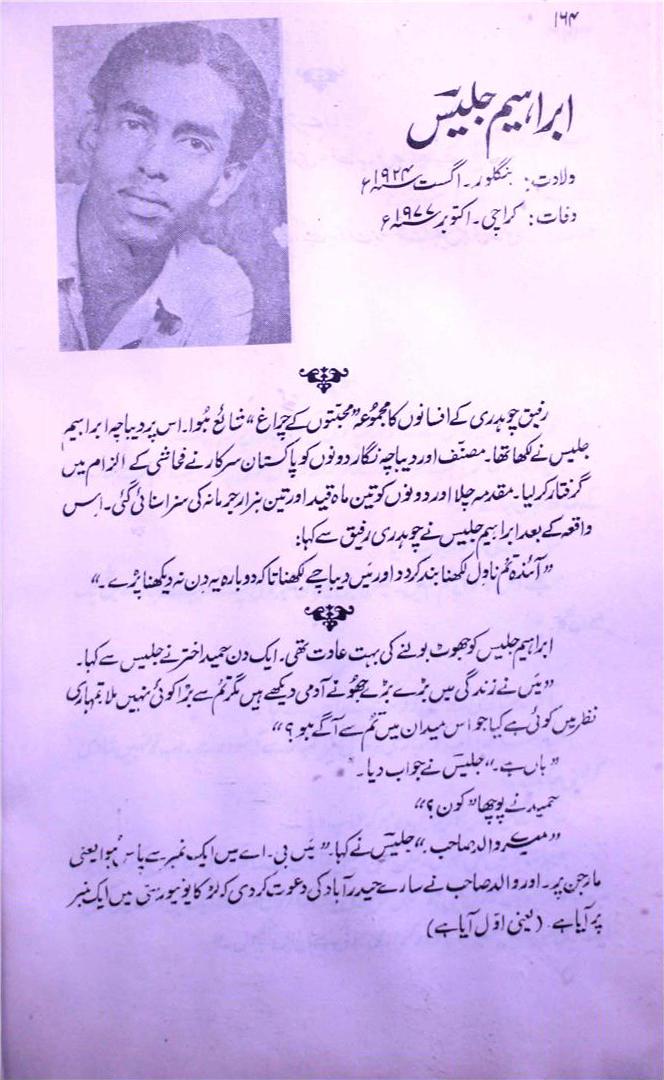 ۱۶۴
ابراہیم جلیسؔ
ولادت: بنگلور۔ اگست ۱۹۲۴ء
وفات: کراچی۔ اکتوبر ۱۹۷۷ء
رفیق چوہدری کے افسانوں کا مجموعہ ”محبّتوں کے چراغ“ شائع ہُوا۔ اس پر دیباچہ ابراہیم
جلیس نے لکھا تھا۔ مصنّف اور دیباچہ نگار دونوں کو پاکستان سرکار نے فحاشی کے الزام میں
گرفتار کر لیا۔ مقدمہ چلا اور دونوں کو تین ماہ قید اور تین ہزار جرمانہ کی سزا سنائی گئی۔ اس
واقعہ کے بعد ابراہیم جلیس نے چوہدری رفیق سے کہا:
”آئندہ تم ناول لکھنا بند کر دو اور میں دیباچے لکھنا تاکہ دوبارہ یہ دن نہ دیکھنا پڑے۔“
ابراہیم جلیس کو جھوٹ بولنے کی بہت عادت تھی۔ ایک دن حمید اختر نے جلیس سے کہا۔
”میں نے زندگی میں بڑے بڑے جھوٹے آدمی دیکھے ہیں مگر تم سے بڑا کوئی نہیں ملا تمہاری
نظر میں کوئی ہے کیا جو اس میدان میں تم سے آگے ہو؟“
”ہاں ہے۔“ جلیسؔ نے جواب دیا۔
حمید نے پوچھا ”کون؟“
”میرے والد صاحب۔“ جلیسؔ نے کہا۔ ”میں بی۔ اے میں ایک نمبر سے پاس ہُوا یعنی
مارجن پر۔ اور والد صاحب نے سارے حیدر آباد کی دعوت کر دی کہ لڑکا یونیورسٹی میں ایک نمبر
پر آیا ہے۔ (یعنی اوّل آیا ہے)